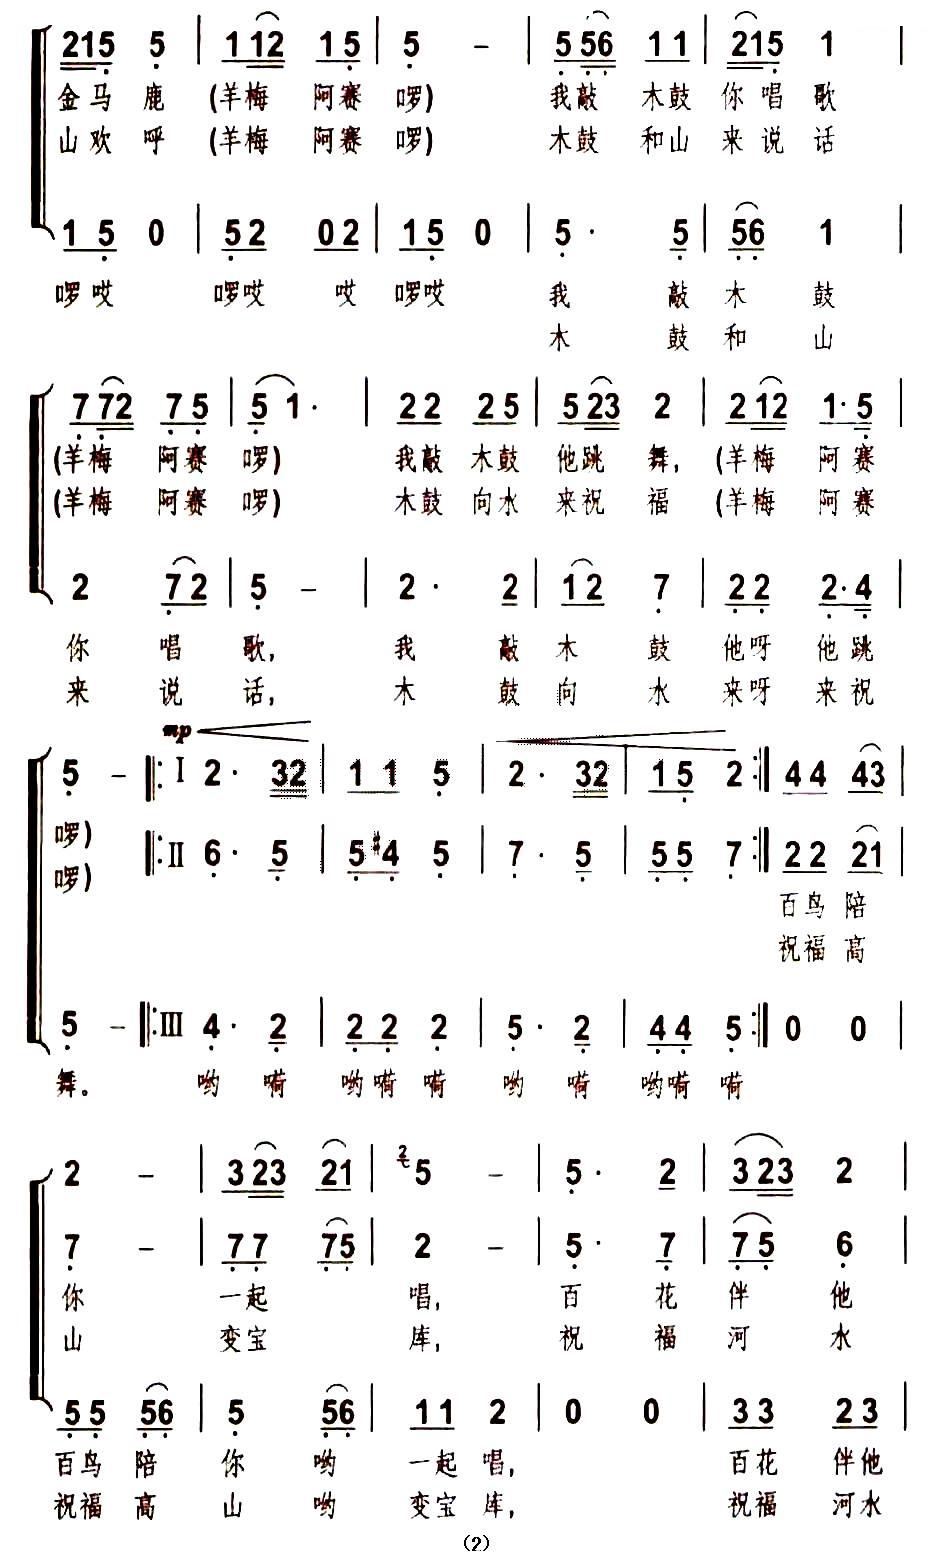 215 5 | 1 12 1 5 | 5 – | 5 56 1 1 | 215 1 |
金马鹿 (羊梅 阿赛 啰) 我敲 木鼓 你唱歌
山欢呼 (羊梅 阿赛 啰) 木鼓 和山 来说话
1 5 0 | 5 2 0 2 | 1 5 0 | 5· 5 | 56 1 |
啰哎 啰哎 哎 啰哎 我 敲 木 鼓
木 鼓 和 山
7 72 7 5 | 5 1· | 2 2 2 5 | 5 23 2 | 2 12 1· 5 |
(羊梅 阿赛 啰) 我敲 木鼓 他跳 舞, (羊梅 阿赛
(羊梅 阿赛 啰) 木鼓 向水 来祝 福 (羊梅 阿赛
2 7 2 | 5 – | 2· 2 | 1 2 7 | 2 2 2· 4 |
你 唱 歌, 我 敲 木 鼓 他呀 他跳
来 说 话, 木 鼓 向 水 来呀 来祝
mp
5 – ‖: I 2· 32 | 1 1 5 | 2· 32 | 1 5 2 :‖ 4 4 4 3 |
啰)
‖: II 6· 5 | 5 #4 5 | 7· 5 | 5 5 7 :‖ 2 2 2 1 |
啰)
百鸟 陪
祝福 高
5 – ‖: III 4· 2 | 2 2 2 | 5· 2 | 4 4 5 :‖ 0 0 |
舞。 哟 嗬 哟嗬 嗬 哟 嗬 哟嗬 嗬
2 – | 3 23 2 1 | 2 5 – | 5· 2 | 3 23 2 |
7 – | 7 7 7 5 | 2 – | 5· 7 | 7 5 6 |
你 一起 唱, 百 花 伴 他
山 变宝 库, 祝 福 河 水
5 5 5 6 | 5 5 6 | 1 1 2 | 0 0 | 3 3 2 3 |
百鸟 陪 你 哟 一起 唱, 百花 伴他
祝福 高 山 哟 变宝 库, 祝福 河水
(2)